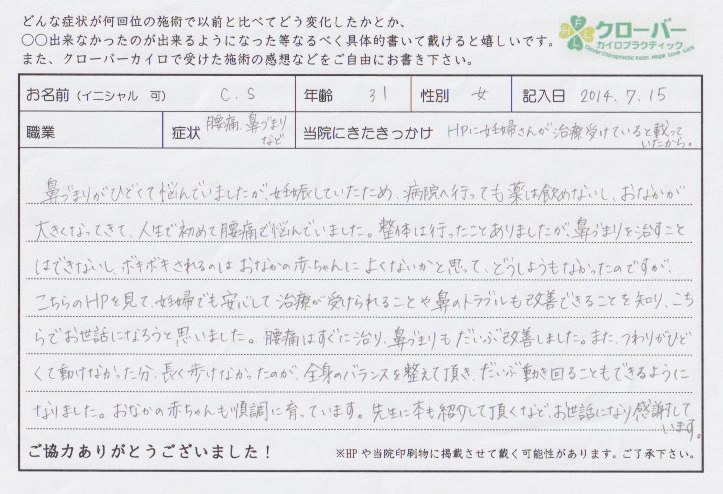 どんな症状が何回位の施術で以前と比べてどう変化したかとか、
〇〇出来なかったのが出来るようになった等なるべく具体的書いて戴けると嬉しいです。
また、クローバーカイロで受けた施術の感想などをご自由にお書き下さい。
HFLL
クローバー
カイロプラクティック
Clover Chiropractic Faith Hope Love Luck
お名前（イニシャル 可） C.S 年齢 31 性別 女 記入日 2014.7.15
職業 症状 腰痛、鼻づまりなど 当院にきたきっかけ HPに妊婦さんが治療受けていると載っていたから。
鼻づまりがひどくて悩んでいましたが、妊娠していたため、病院へ行っても薬は飲めないし、おなかが
大きくなってきて、人生で初めて腰痛で悩んでいました。整体は行ったことありましたが、鼻づまりを治すこと
はできないし、ボキボキされるのはおなかの赤ちゃんによくないかと思って、どうしようもなかったのですが、
こちらのHPを見て、妊婦でも安心して治療が受けられることや鼻のトラブルも改善できることを知り、こち
らでお世話になろうと思いました。腰痛はすぐに治り、鼻づまりもだいぶ改善しました。また、つわりがひど
くて動けなかった分、長く歩けなかったのが、全身のバランスを整えて頂き、だいぶ動き回ることもできるように
なりました。おなかの赤ちゃんも順調に育っています。先生に本も紹介して頂くなど、お世話になり感謝して
います。
ご協力ありがとうございました！ ※HPや当院印刷物に掲載させて戴く可能性があります。ご了承下さい。